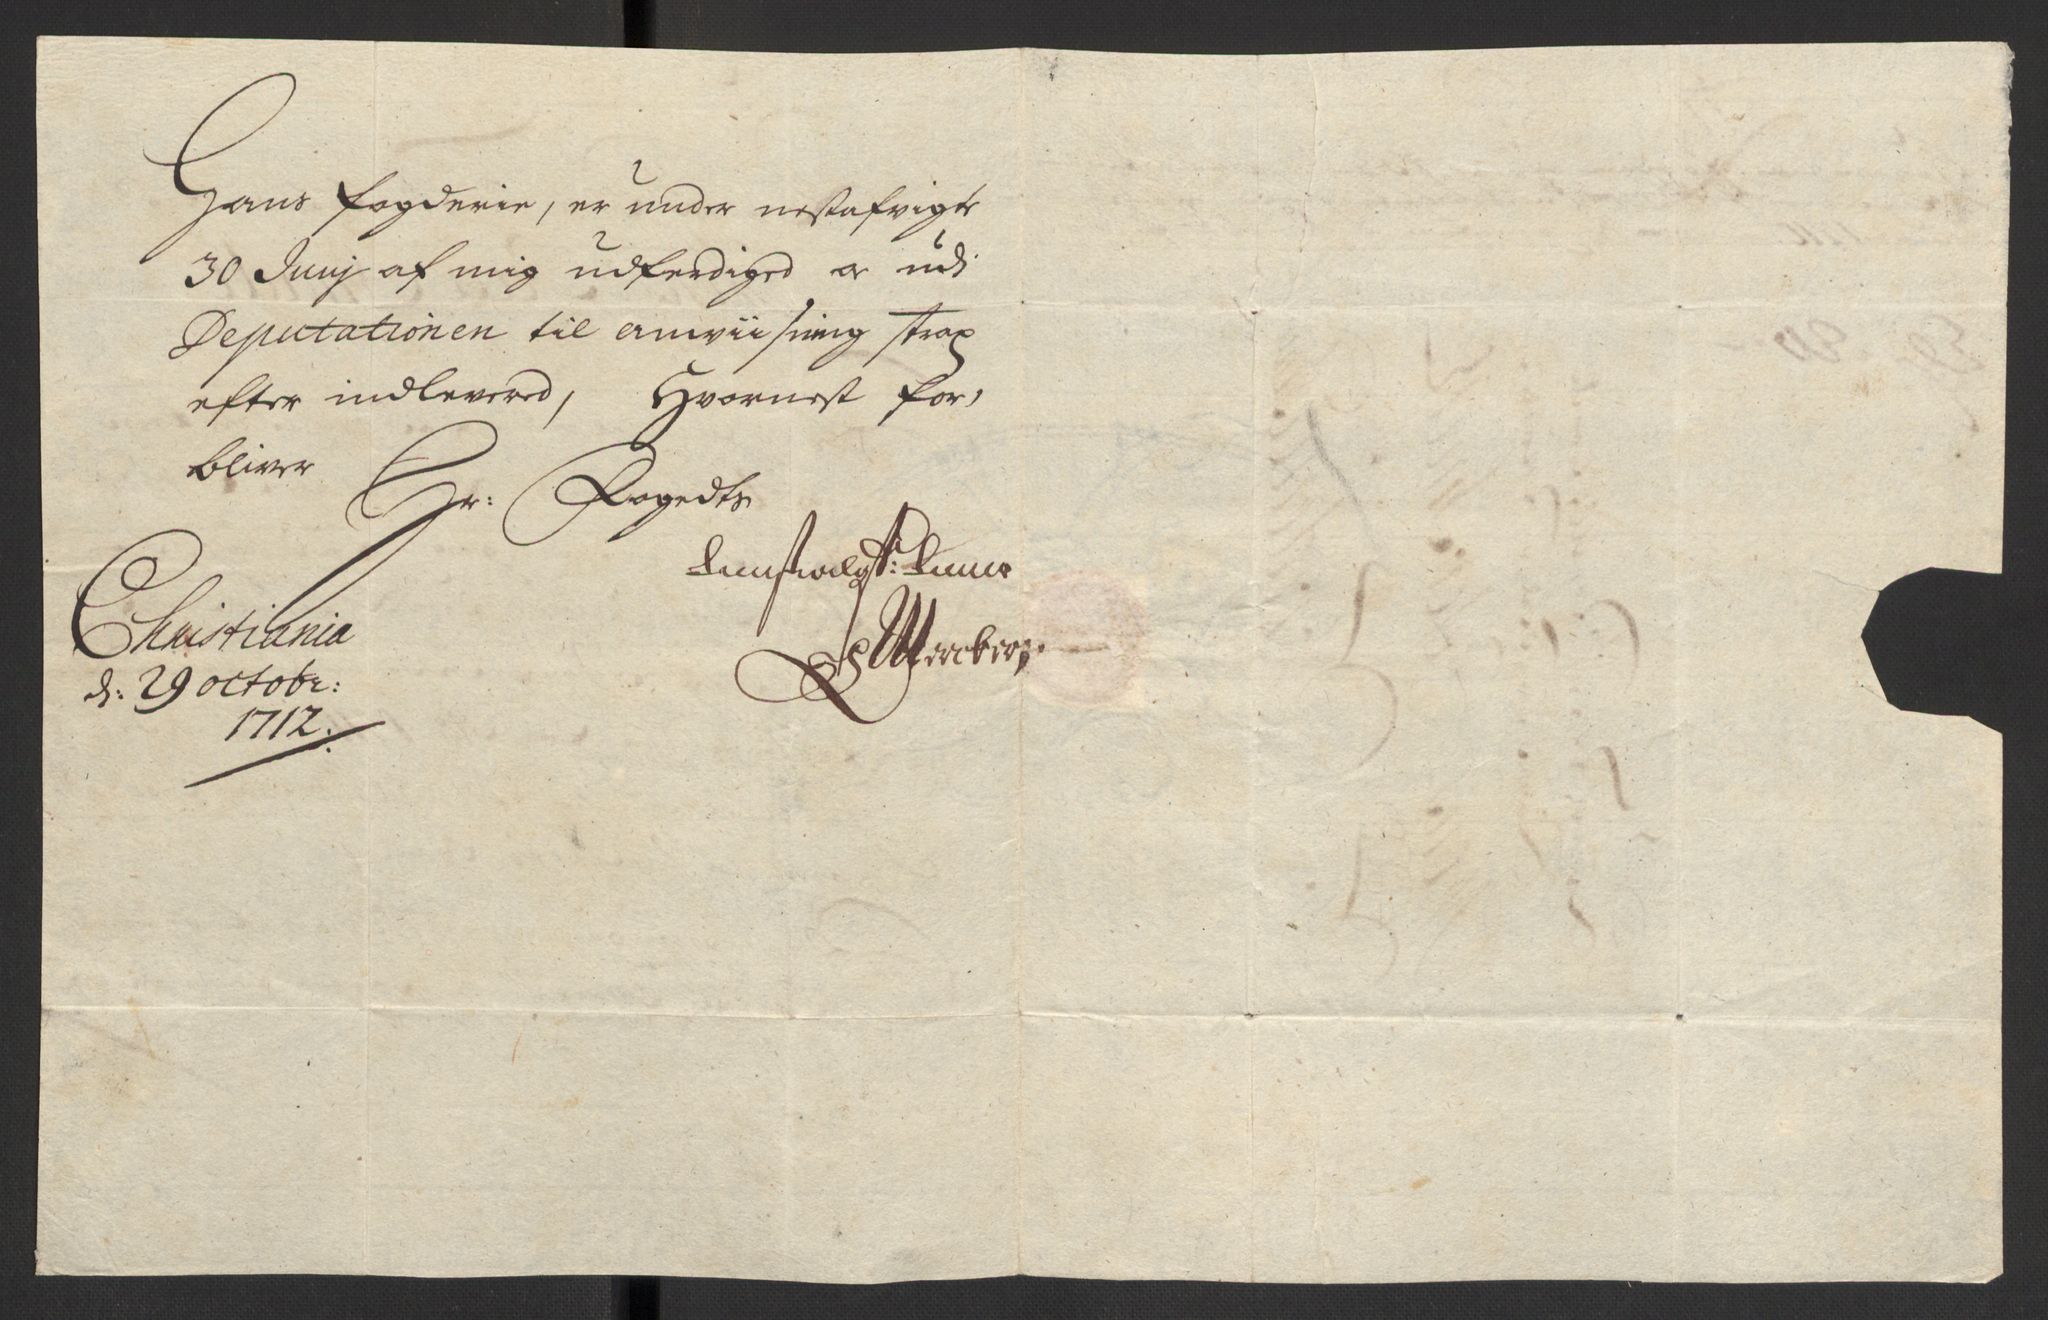 Hans fogderie, er under nestafvigte
30 Junj af mig udferdiged og udi
Deputationen til anviisning strax
efter indlevered, Hvornest for,
bliver
Hr: Fogedts
tienstvilligst: tiener
Christiania
d: 29 octobr:
1712.